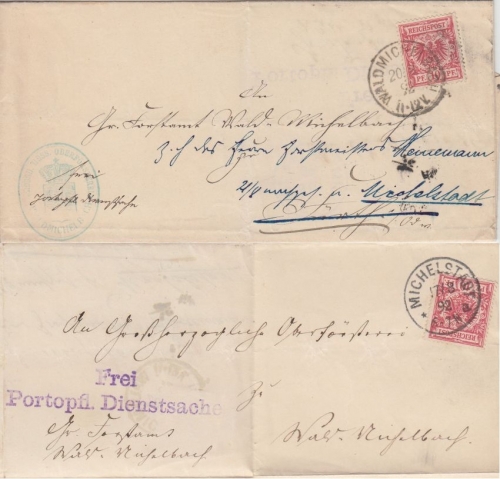 REICHSPOST
WALDMICHELBACH
An
Gr. Forstamt Wald-Michelbach
z. H. des Herrn Forstmeisters Heinemann
Michelstadt
frei
portopfl. Dienstsache
MICHELSTADT
REICHSPOST
An Großherzogliche Oberförsterei
zu
Wald-Michelbach.
Frei
Portopfl. Dienstsache
Gr. Forstamt
Wald-Michelbach